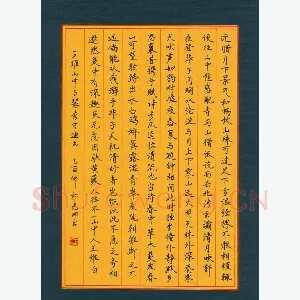 近腊月下景气和畅故山殊可过足下方温经猥不敢相烦辄
便往山中憩感配寺与山僧饭讫而去北涉玄灞清月映郭
夜登华子冈辋水沦涟与月上下寒山远火明灭林外深巷寒
犬吠声如豹村墟夜舂复与疏钟相间此时独坐僮仆静默多
思曩昔携手赋诗步仄径临清流也当待春中草木蔓发春
山可望轻鲦出水白鸥矫翼露湿青皋麦陇朝雊斯之不
远倘能从我游乎非子天机清妙者岂能以此不急之务相
邀然是中有深趣矣无忽因驮黄檗人往不一山中人王维白
王维山中与裴秀才迪书 乙酉